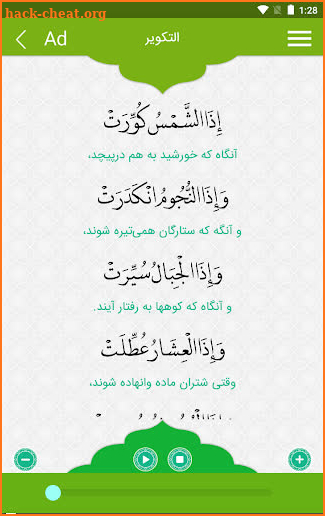 hack-cheat.org
1:28
Ad
التكوير
إِذَا الشَّمْسُ كُوِّرَتْ
آنگاه که خورشید به هم درپیچد،
وَإِذَا النُّجُومُ انْكَدَرَتْ
و آنگه که ستارگان همی‌تیره شوند،
وَإِذَا الْجِبَالُ سُيِّرَتْ
و آنگاه که کوهها به رفتار آیند.
وَإِذَا الْعِشَارُ عُطِّلَتْ
وقتی شتران ماده وانهاده شوند،